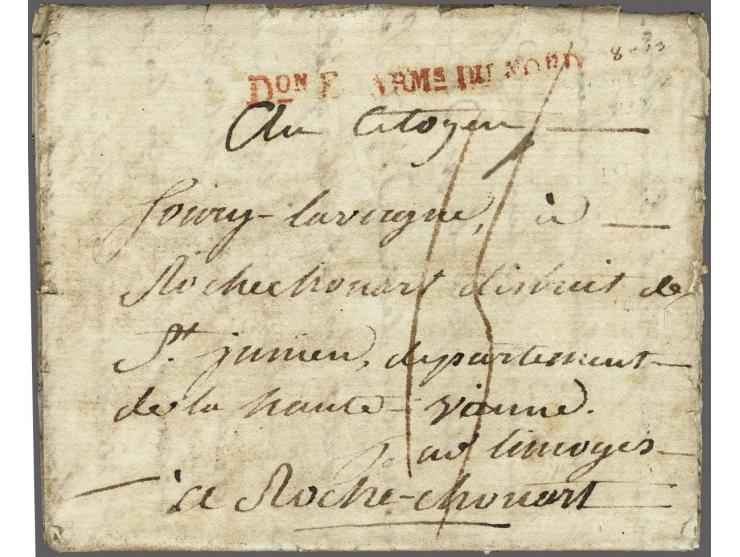 Don E ARMs DU NORD
Au Citoyen
Soiry-lavergne, à
Rochechouart district de
St. junien, departement
de la haute-vienne.
par limoges
à Roche-chouart